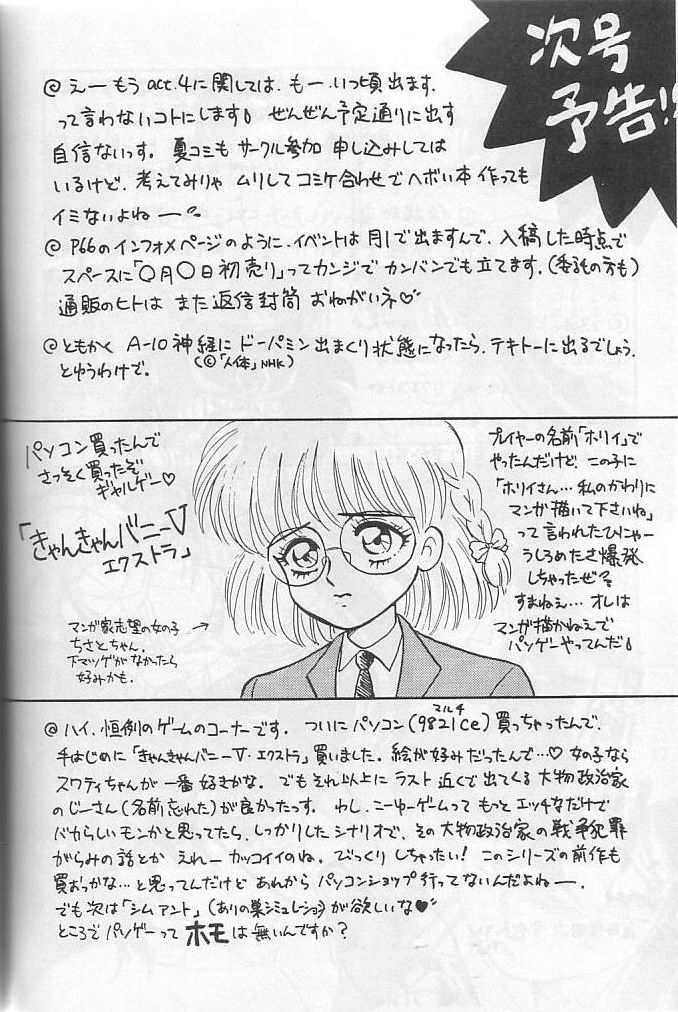 次号
予告!!
@ えー もう act.4に関しては、もー、いつ頃出ます、
って言わないコトにします。ぜんぜん予定通りに出す
自信ないっす。夏コミも サークル参加 申し込みしては
いるけど、考えてみりゃ ムリしてコミケ合わせで ヘボい本 作っても
イミないよねー。
@ P66のインフォメページのように、イベントは 月1で出ますんで、入稿した時点で
スペースに「〇月〇日初売り」ってカンジで カンバンでも立てます。(委託の方も)
通販のヒトは また返信封筒 おねがいネ♡
@ ともかく A-10神経に ドーパミン出まくり状態になったら、テキトーに出るでしょう。
(©「人体」NHK)
とゆうわけで。
パソコン買ったんで
さっそく買ったぞ
ギャルゲー♡
「きゃんきゃんバニーV
エクストラ」
マンガ家志望の女の子 →
ちさとちゃん。
下マツゲがなかったら
好みかも。
プレイヤーの名前「ホリイ」で
やったんだけど、この子に
「ホリイさん…私のかわりに
マンガ描いて下さいね」
って言われたひにゃー
うしろめたさ爆発
しちゃったぜ
すまねえ…オレは
マンガ描かねえで
パソゲーやってんだ
@ ハイ、恒例のゲームのコーナーです。ついに パソコン(9821Ce)買っちゃったんで、
マルチ
手はじめに「きゃんきゃんバニーV・エクストラ」買いました。絵が好みだったんで…♡ 女の子なら
スワティちゃんが一番 好きかな。でもそれ以上に ラスト 近くで出てくる 大物政治家
のじーさん(名前忘れた)が良かったっす。わし、こーゆーゲームって もっと エッチなだけで
バカらしいモンかと思ってたら、しっかりしたシナリオで、その大物政治家の戦争犯罪
がらみの話とか えれー カッコイイのね。びっくり しちゃたい! このシリーズの前作も
買おっかな…と思ってんだけど あれから パソコンショップ行ってないんだよねー。
でも次は「シムアント」(ありの巣シミュレーション)が欲しいな♥
ところで パソゲーって ホモは無いんですか?